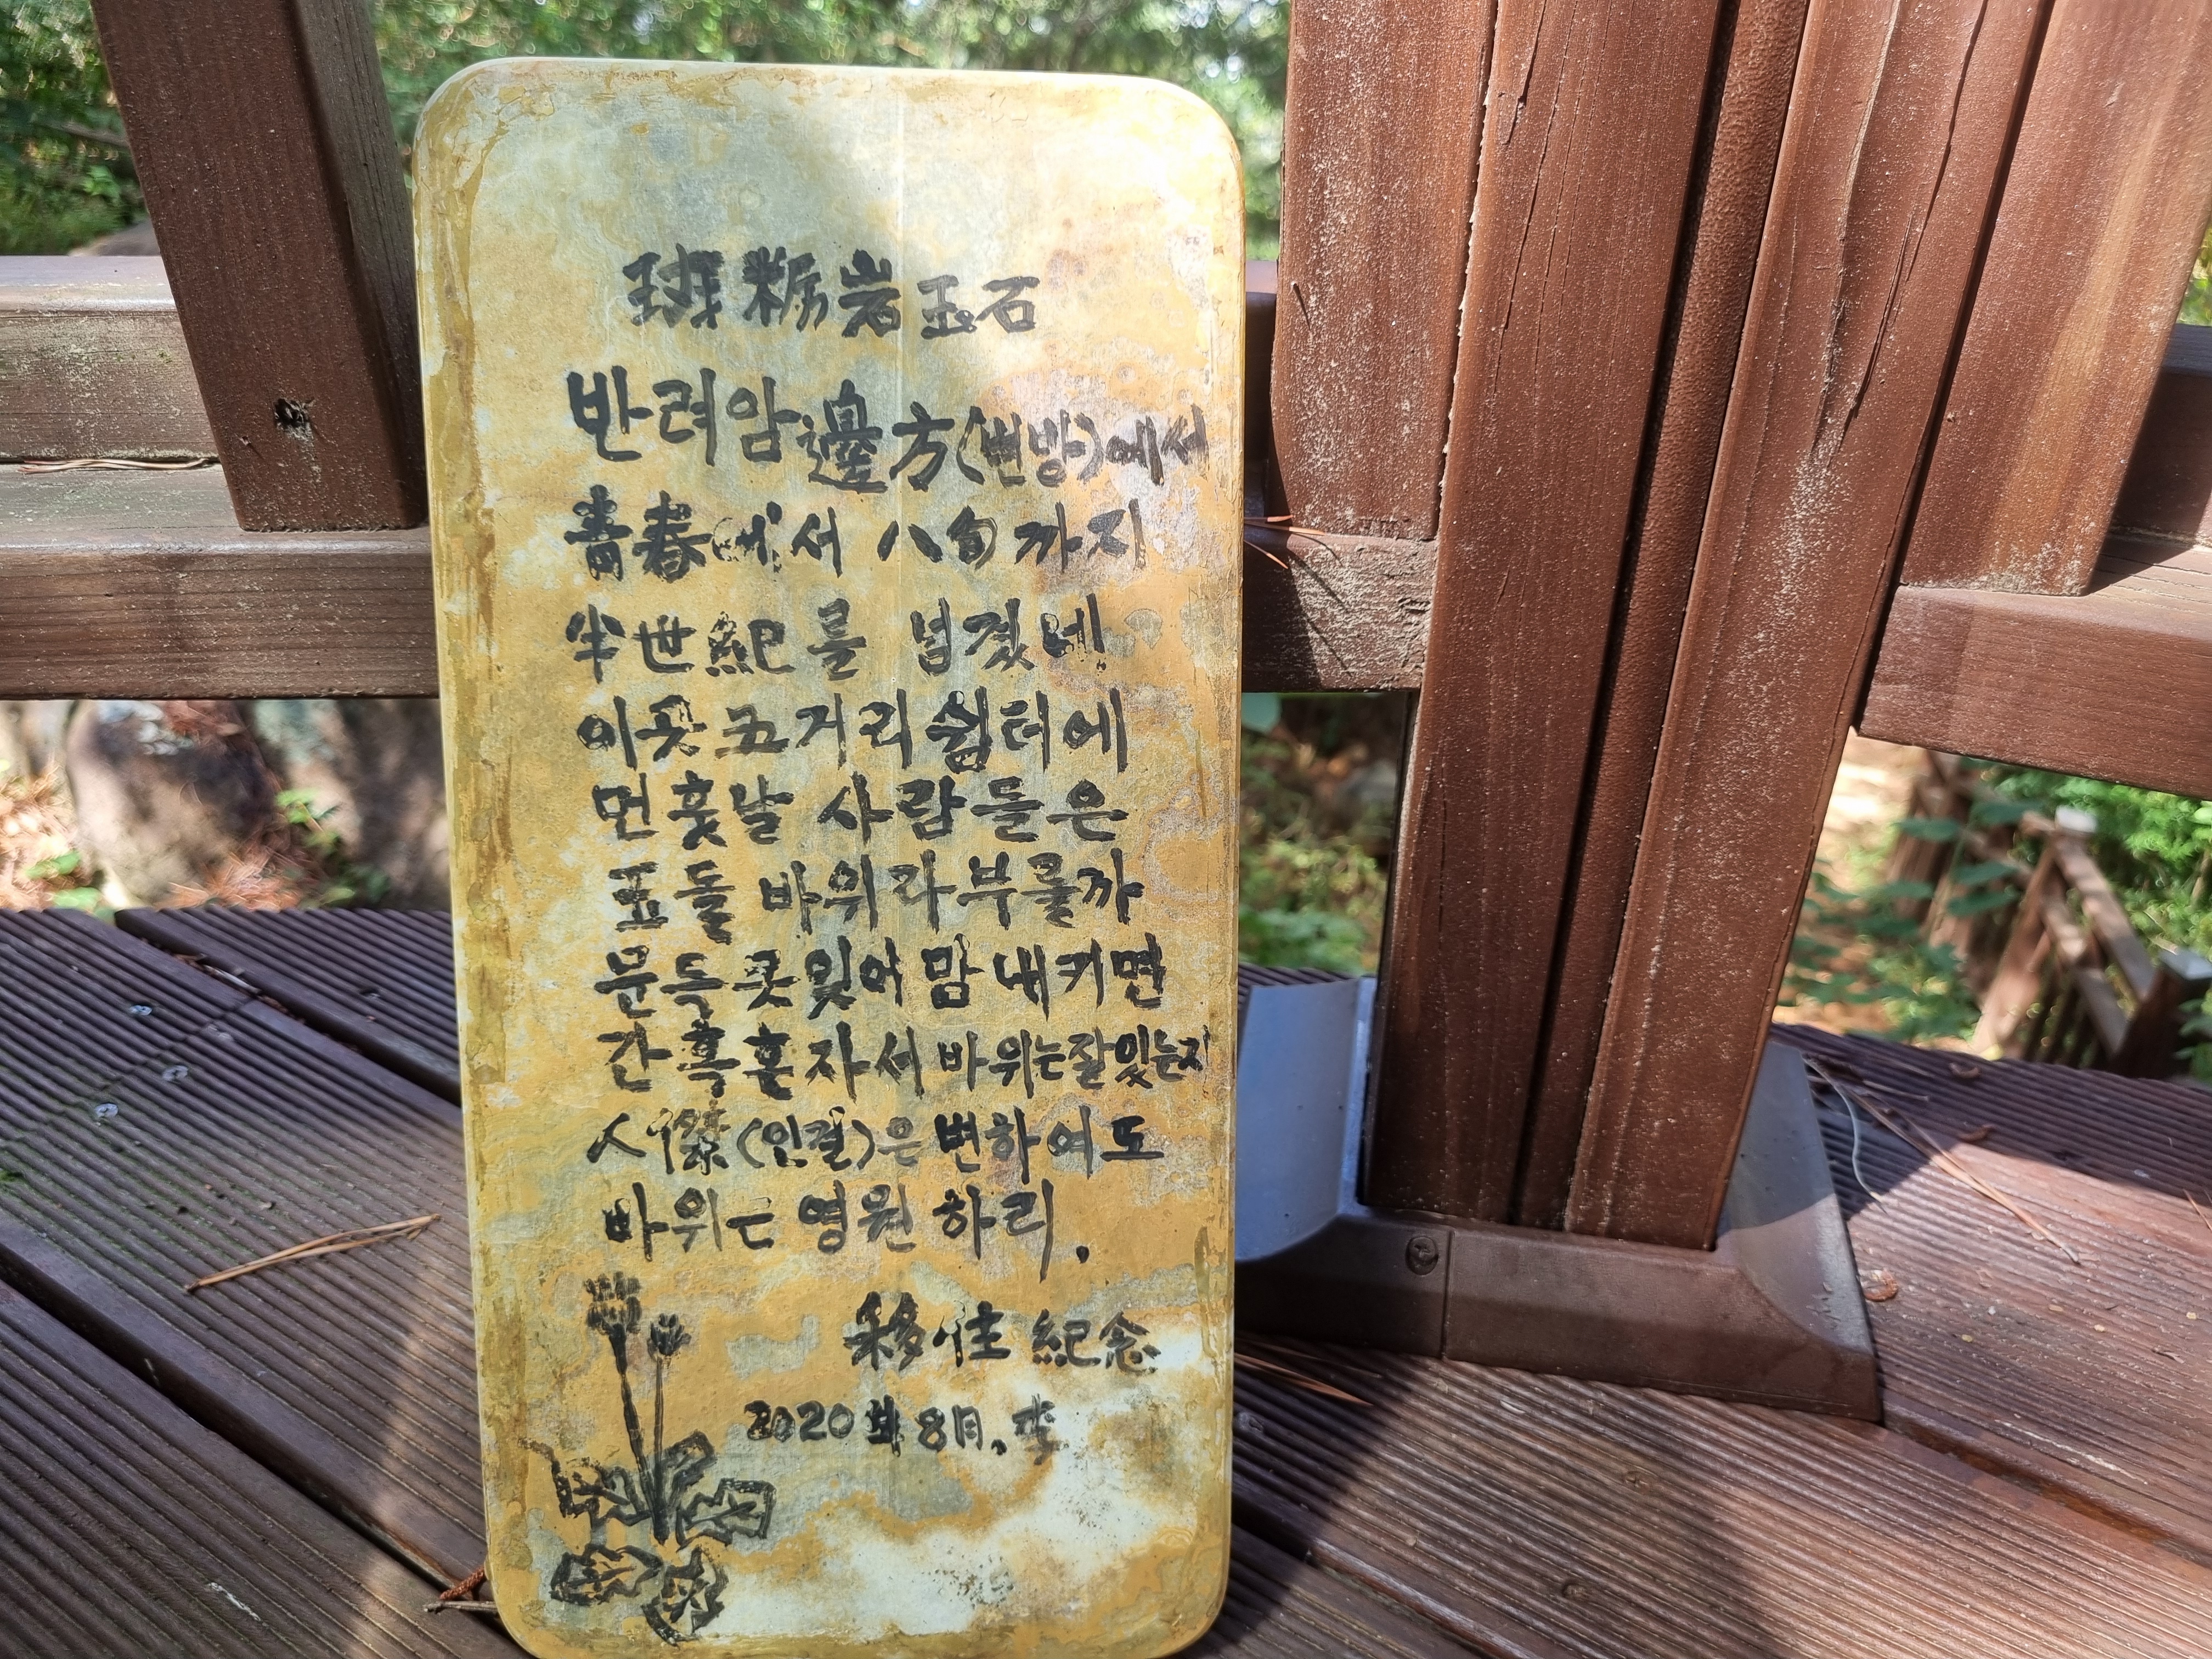 班糲岩玉石
반려암邊方(변방)에서
靑春에서 八旬까지
半世紀를 넘겼네
이곳 五거리쉼터에
먼훗날 사람들은
玉돌 바위라부를까
문득 못잊어 맘내키면
간혹혼자서 바위는잘있는지
人傑(인걸)은 변하여도
바위는 영원하리.
移住紀念
2020年8月. 李